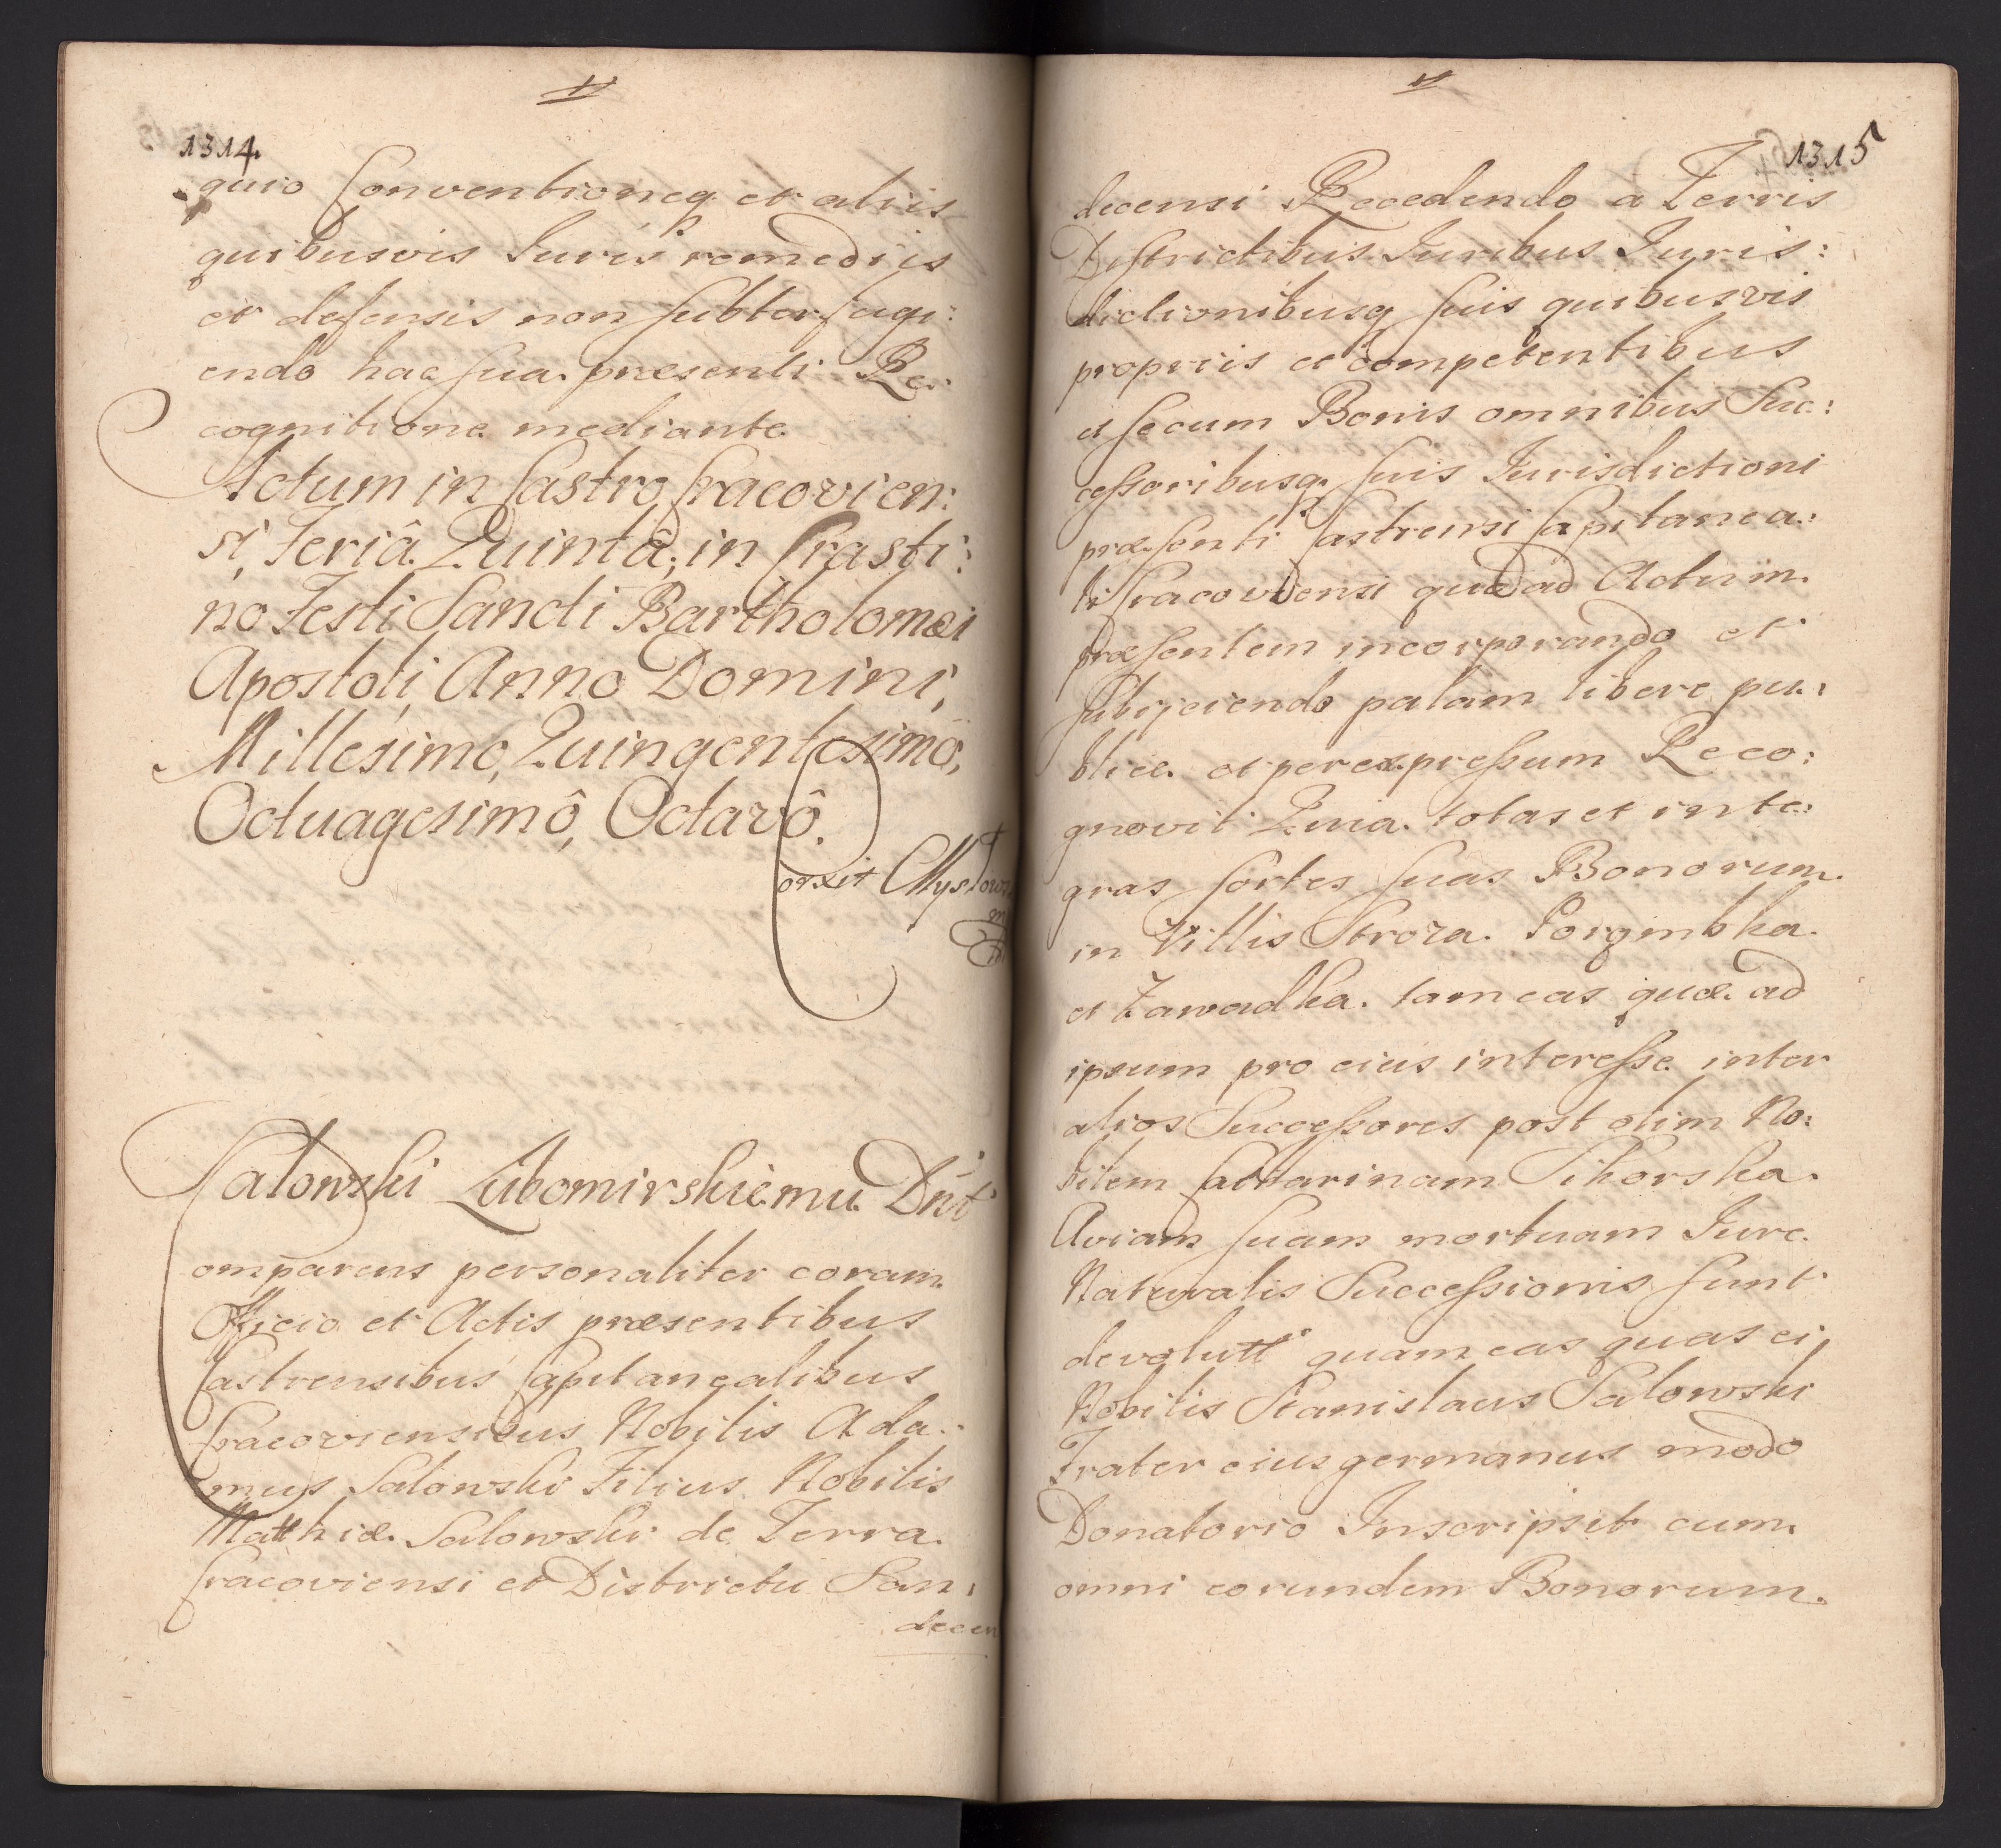 1314.
quio Conventioneq. et aliis
quibusvis Juris remediis
et defensis non subterfugi:
endo hac sua praesenti Re:
cognitione mediante
Actum in Castro Cracovien:
si, Feriâ Quintâ, in Crasti:
no Festi Sancti Bartholomæi
Apostoli, Anno Domini,
Millesimo, Quingentesimô,
Octuagesimô, Octavô.
Salowski Lubomirskiemu Dnt
Comparens personaliter coram
Officio et Actis præsentibus
Castrensibus Capitanealibus
Cracoviensibus Nobilis Ada:
mus Salowski Filius Nobilis
Matthiæ Salowski de Terra
Cracoviensi et Districtu San:
decen
1315
decensi Recedendo à Terris
Districtibus Juribus Juris:
dictionibusq suis quibusvis
propriis et competentibus
et secum Bonis omnibus Suc:
cessoribusq. suis Jurisdictioni
præsenti Castrensi Capitanea:
li Cracoviensi quoad Actum
præsentem incorporando et
subijciendo palam libere pu:
blice et per expressum Reco:
gnovit Quia totas et inte:
gras sortes suas Bonorum
in Villis Stroza Porembka
et Zawadka tam eas quæ ad
ipsum pro eius interesse inter
alios Successores post olim No:
bilem Catharinam Sikorska
Aviam suam mortuam Jure
Naturalis Successionis sunt
devolutt quam eas quas ei
Nobilis Stanislaus Salowski
Frater eius germanus modo
Donatorio Inscripsit cum
omni eorundem Bonorum